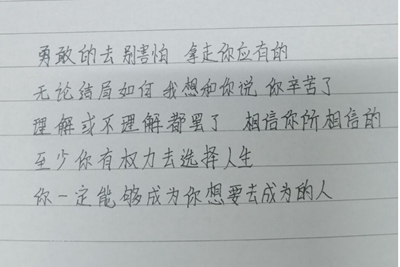 勇敢的去别害怕 拿走你应有的
无论结局如何 我想和你说 你辛苦了
理解或不理解都罢了 相信你所相信的
至少你有权力去选择人生
你一定能够成为你想要去成为的人